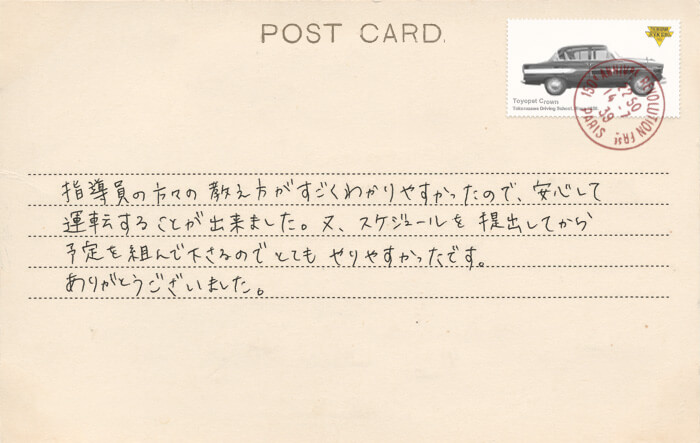 POST CARD
Toyopet Crown
指導員の方々の教え方がすごくわかりやすかったので、安心して
運転することが出来ました。又、スケジュールを提出してから
予定を組んで下さるのでとてもやりやすかったです。
ありがとうございました。